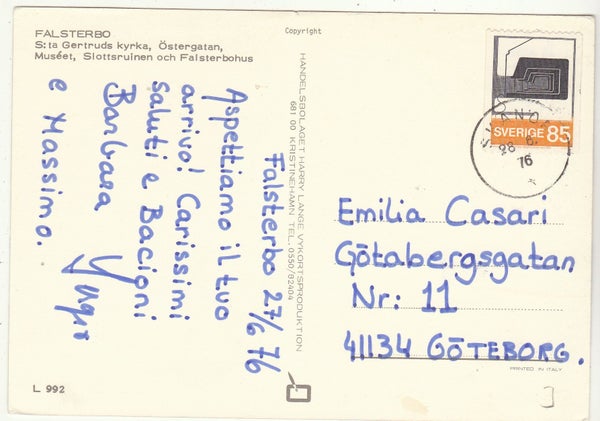 FALSTERBO
S:ta Gertruds kyrka, Östergatan,
Muséet, Slottsruinen och Falsterbohus
Copyright
Falsterbo 27/6 76
Aspettiamo il tuo
arrivo! Carissimi
saluti e Bacioni
Barbara
e Massimo.
HANDELSBOLAGET HARRY LANGE, VYKORTSPRODUKTION
681 00 KRISTINEHAMN TEL. 0550/82404
SVERIGE 85
28 6
76
Emilia Casari
Götabergsgatan
Nr: 11
41134 GÖTEBORG.
PRINTED IN ITALY
L 992